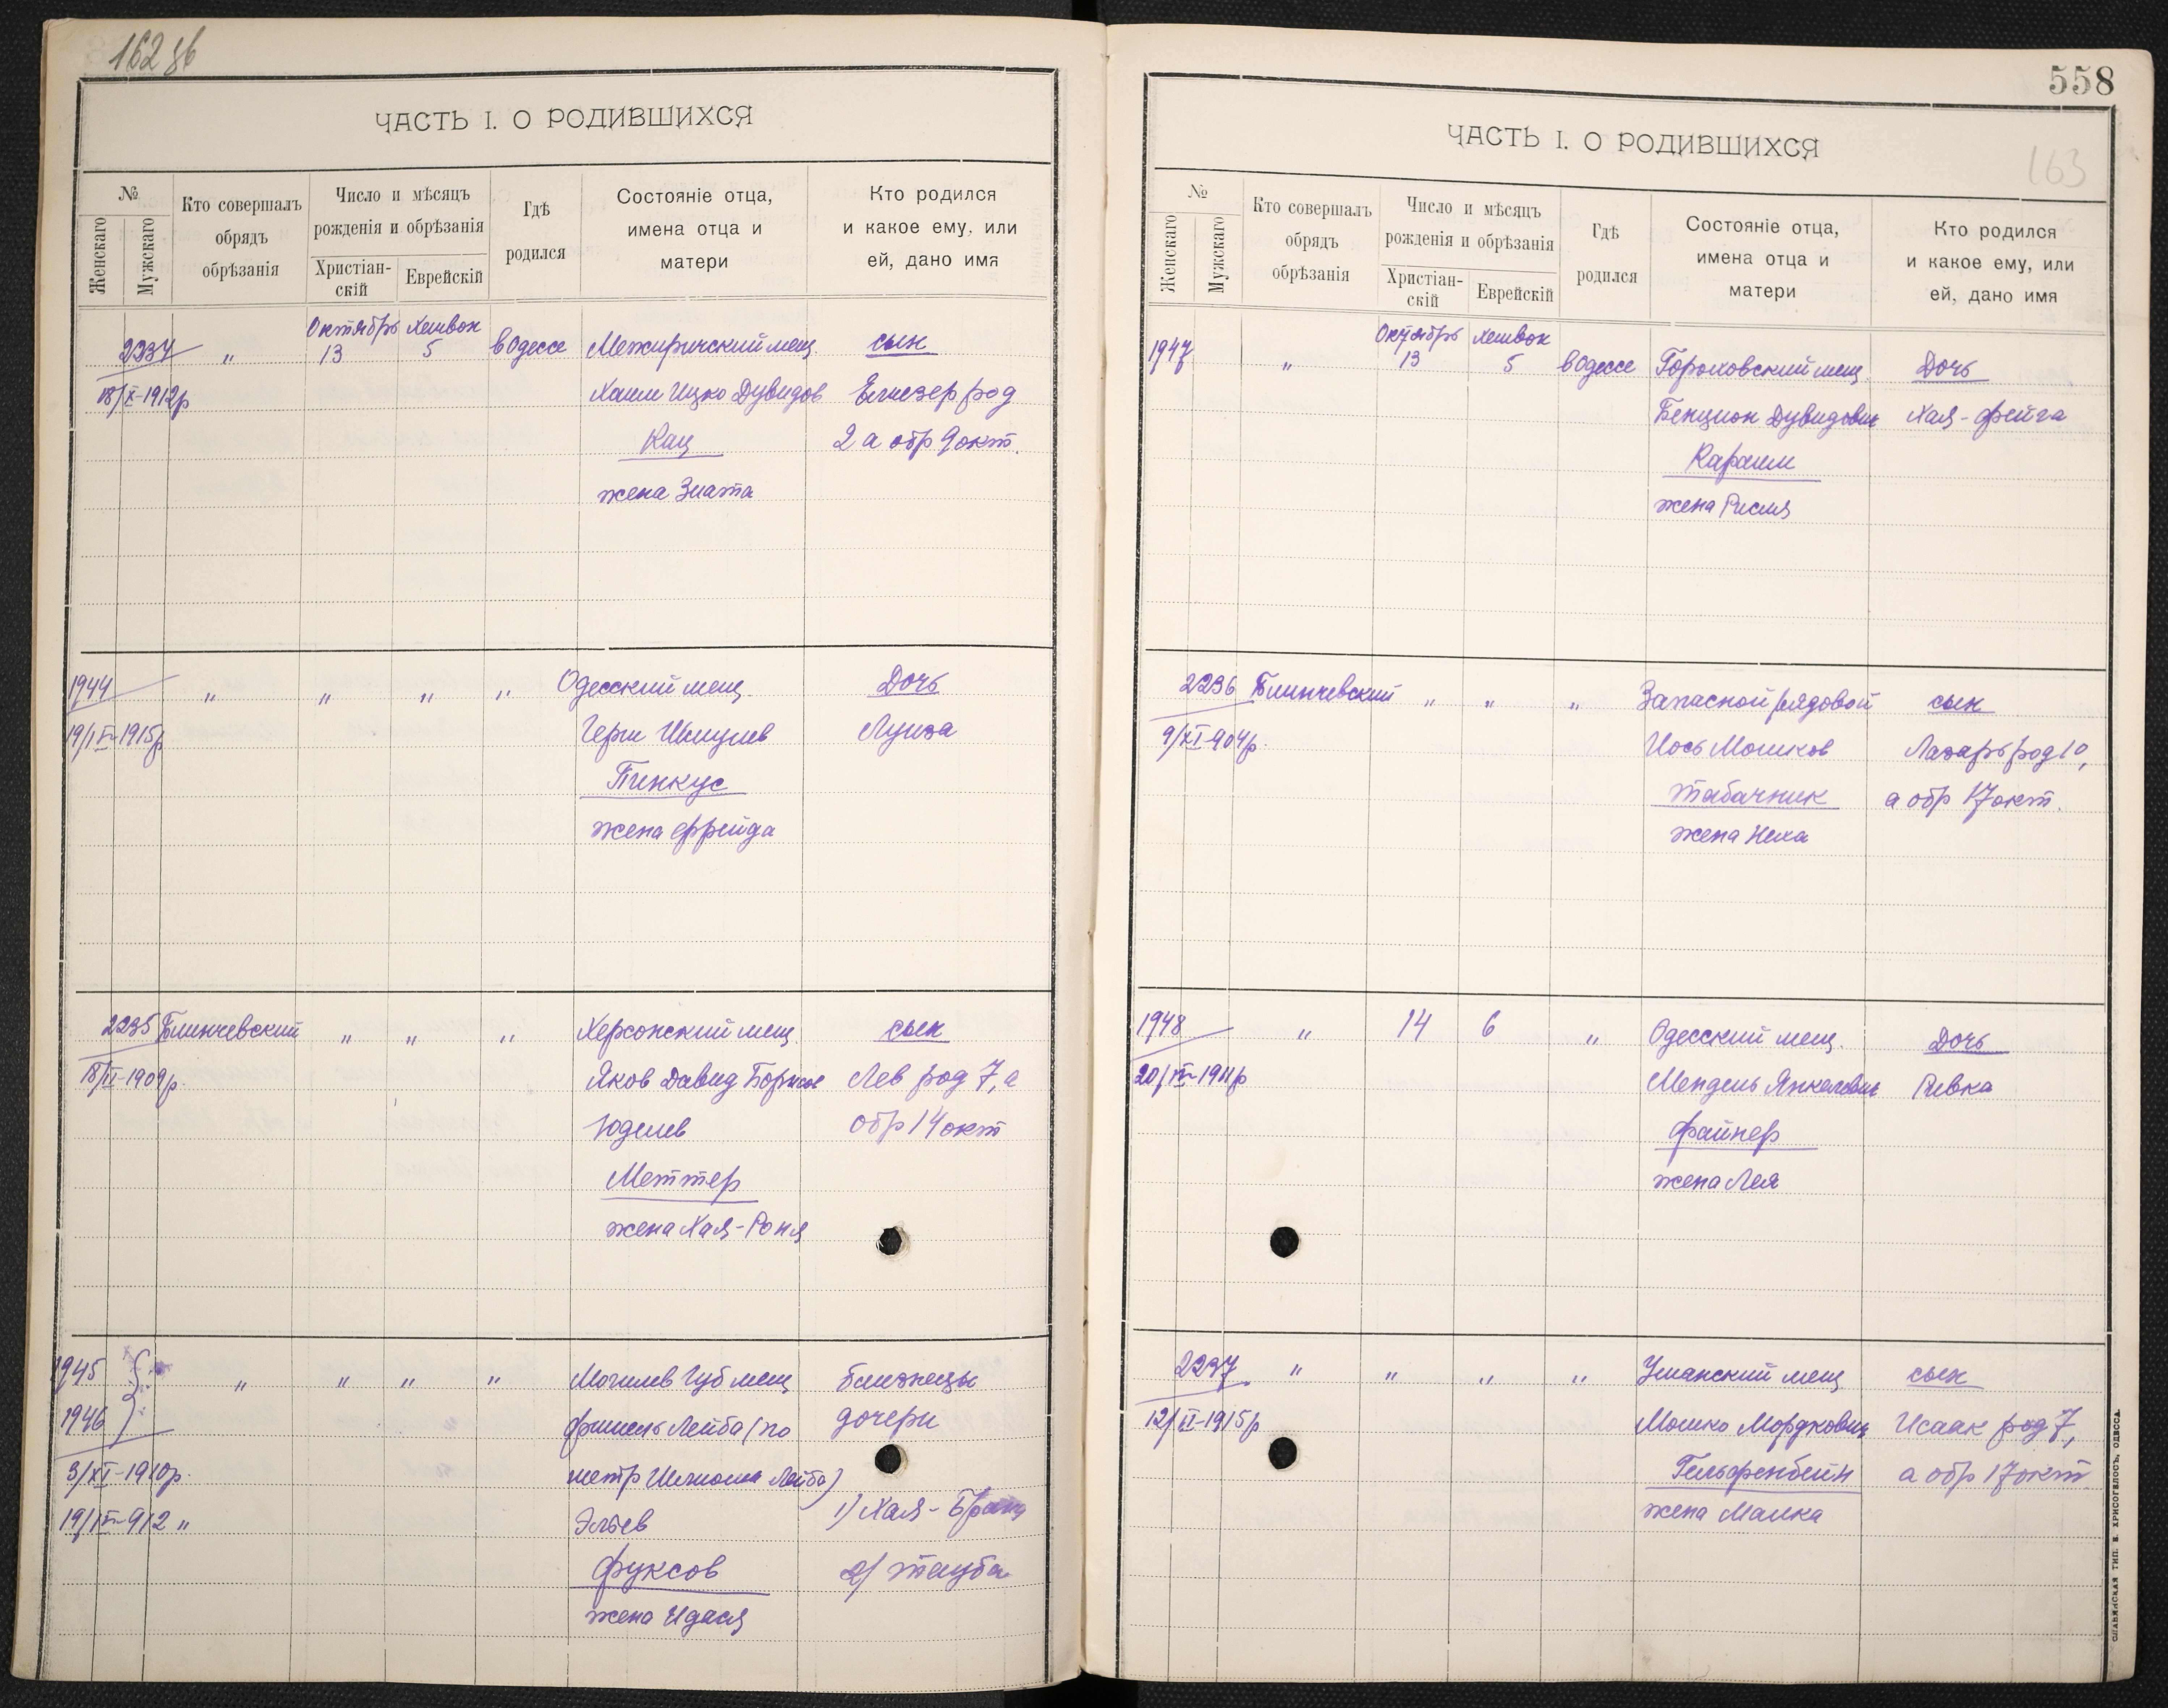 162 зв
ЧАСТЬ I. О РОДИВШИХСЯ
№
Женскаго
Мужскаго
Кто совершалъ
обрядъ
обрѣзанія
Число и мѣсяцъ
рожденія и обрѣзанія
Христіан-
скій
Еврейскій
Гдѣ
родился
Состояніе отца,
имена отца и
матери
Кто родился
и какое ему, или
ей, дано имя
Октябрь Хешвон
2234 " 13 5 в Одессе Межиричский мещ. сын
18/X-1912р Хаим Ицко Дувидов Елиезер род
Кац 2 а обр 9 окт.
жена Злата
1944 " " " " Одесский мещ. Дочь
19/IV-1915р Герш Шмулев Луиза
Пинкус
жена Фрейда
2235 Блинчевский " " " Херсонский мещ. сын
18/II-1909р. Яков Давид Борисов Лев род 7, а
Юделев обр 14 окт
Меттер
жена Хая-Роня
1945 " " " " Могилев Губ мещ близнецы
1946 Фишель Лейба (по дочери
3/XI-1910р. метр Шлиома Лейба)
19/IV-912 " Эльев 1) Хая-
Фуксов 2) Тауба
жена Идася
558
163
ЧАСТЬ I. О РОДИВШИХСЯ
№
Женскаго
Мужскаго
Кто совершалъ
обрядъ
обрѣзанія
Число и мѣсяцъ
рожденія и обрѣзанія
Христіан-
скій
Еврейскій
Гдѣ
родился
Состояніе отца,
имена отца и
матери
Кто родился
и какое ему, или
ей, дано имя
Октябрь Хешвон
1947 " 13 5 в Одессе Гороховский мещ. Дочь
Бенцион Дувидович Хая-Фейга
Караим
жена Рися
2236 Блинчевский " " " Запасной рядовой сын
9/XI-904р. Иось Мошков Лазарь род 10,
Табачник а обр 17 окт.
жена Неха
1948 " 14 6 " Одесский мещ. Дочь
20/IV-1911р Мендель Янкелевич Ривка
Файнер
жена Лея
2237 " " " " Уманский мещ сын
12/II-1915р Мошко Мордкович Исаак род 7,
Гельфенбейн а обр 17 окт
жена Малка
СЛАВЯНСКАЯ ТИП. Е. ХРИСОГЕЛОСЪ, ОДЕССА.